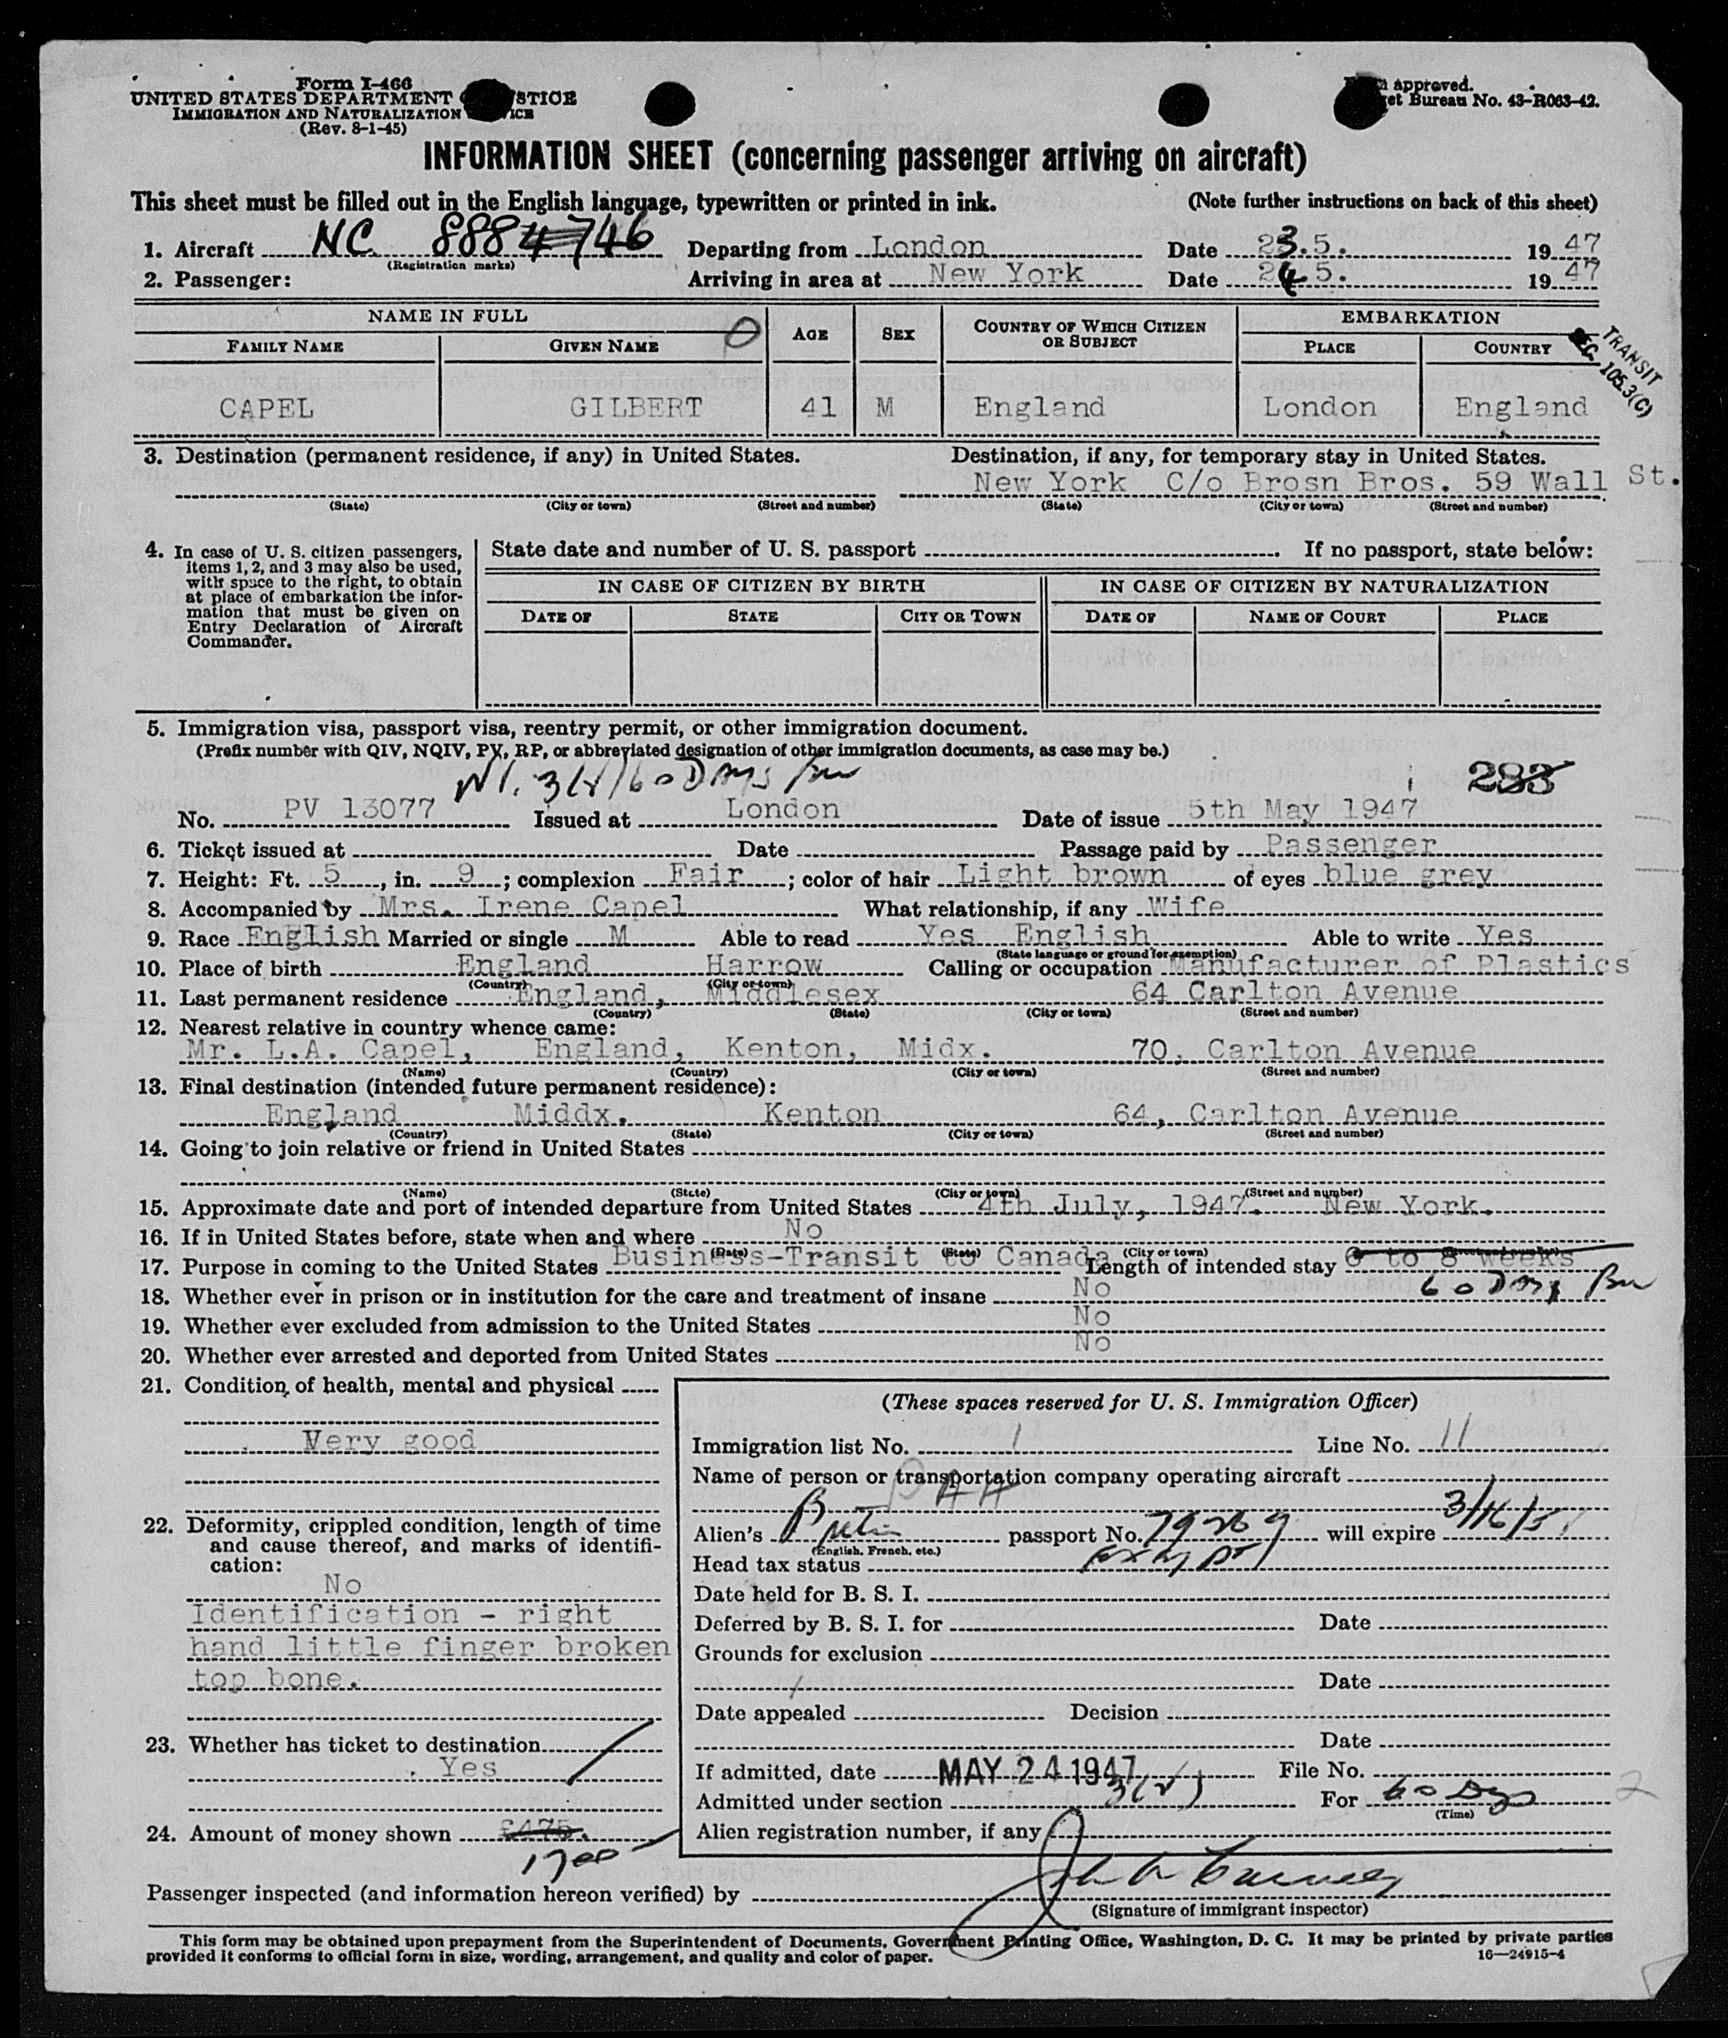 Form I-466
UNITED STATES DEPARTMENT STICE
IMMIGRATION AND NATURALIZATION ICE
(Rev. 8-1-45)
approved.
et Bureau No. 43-R063-42.
INFORMATION SHEET (concerning passenger arriving on aircraft)
This sheet must be filled out in the English language, typewritten or printed in ink. (Note further instructions on back of this sheet)
1. Aircraft NC 888 746 Departing from London Date 23.5. 1947
(Registration marks)
2. Passenger: Arriving in area at New York Date 24 5. 1947
NAME IN FULL AGE SEX COUNTRY OF WHICH CITIZEN OR SUBJECT EMBARKATION
FAMILY NAME GIVEN NAME PLACE COUNTRY
TRANSIT
105.3(C)
CAPEL GILBERT 41 M England London England
3. Destination (permanent residence, if any) in United States. Destination, if any, for temporary stay in United States.
New York C/o Brosn Bros. 59 Wall St.
(State) (City or town) (Street and number) (State) (City or town) (Street and number)
4. In case of U. S. citizen passengers, items 1, 2, and 3 may also be used, with space to the right, to obtain at place of embarkation the information that must be given on Entry Declaration of Aircraft Commander.
State date and number of U. S. passport . If no passport, state below:
IN CASE OF CITIZEN BY BIRTH IN CASE OF CITIZEN BY NATURALIZATION
DATE OF STATE CITY OR TOWN DATE OF NAME OF COURT PLACE
5. Immigration visa, passport visa, reentry permit, or other immigration document.
(Prefix number with QIV, NQIV, PV, RP, or abbreviated designation of other immigration documents, as case may be.)
60 Days
283
No. PV 13077 Issued at London Date of issue 5th May 1947
6. Ticket issued at Date Passage paid by Passenger
7. Height: Ft. 5, in. 9; complexion Fair; color of hair Light brown of eyes blue grey
8. Accompanied by Mrs. Irene Capel What relationship, if any Wife
9. Race English Married or single M Able to read Yes English Able to write Yes
(State language or ground for exemption)
10. Place of birth England Harrow Calling or occupation Manufacturer of Plastics
(Country) (City or town)
11. Last permanent residence England, Middlesex 64 Carlton Avenue
(Country) (State) (City or town) (Street and number)
12. Nearest relative in country whence came:
Mr. L.A. Capel, England, Kenton, Midx. 70, Carlton Avenue
(Name) (Country) (City or town) (Street and number)
13. Final destination (intended future permanent residence):
England Middx. Kenton 64, Carlton Avenue
(Country) (State) (City or town) (Street and number)
14. Going to join relative or friend in United States
(Name) (State) (City or town) (Street and number)
15. Approximate date and port of intended departure from United States 4th July, 1947. New York.
16. If in United States before, state when and where No
(Date) (State) (City or town) (Street and number)
17. Purpose in coming to the United States Business-Transit to Canada Length of intended stay 6 to 8 weeks
60 Days
18. Whether ever in prison or in institution for the care and treatment of insane No
19. Whether ever excluded from admission to the United States No
20. Whether ever arrested and deported from United States No
21. Condition of health, mental and physical
Very good
22. Deformity, crippled condition, length of time and cause thereof, and marks of identification:
No
Identification - right
hand little finger broken
top bone.
23. Whether has ticket to destination
Yes
24. Amount of money shown £475.
1700
(These spaces reserved for U. S. Immigration Officer)
Immigration list No. 1 Line No. 11
Name of person or transportation company operating aircraft
PAA
Alien's passport No. will expire
(English, French, etc.)
Head tax status
Date held for B. S. I.
Deferred by B. S. I. for Date
Grounds for exclusion
Date
Date appealed Decision
Date
If admitted, date MAY 24 1947 File No.
Admitted under section For 60 Dys 2
(Time)
Alien registration number, if any
Passenger inspected (and information hereon verified) by
(Signature of immigrant inspector)
This form may be obtained upon prepayment from the Superintendent of Documents, Government Printing Office, Washington, D. C. It may be printed by private parties
provided it conforms to official form in size, wording, arrangement, and quality and color of paper. 16—24915-4